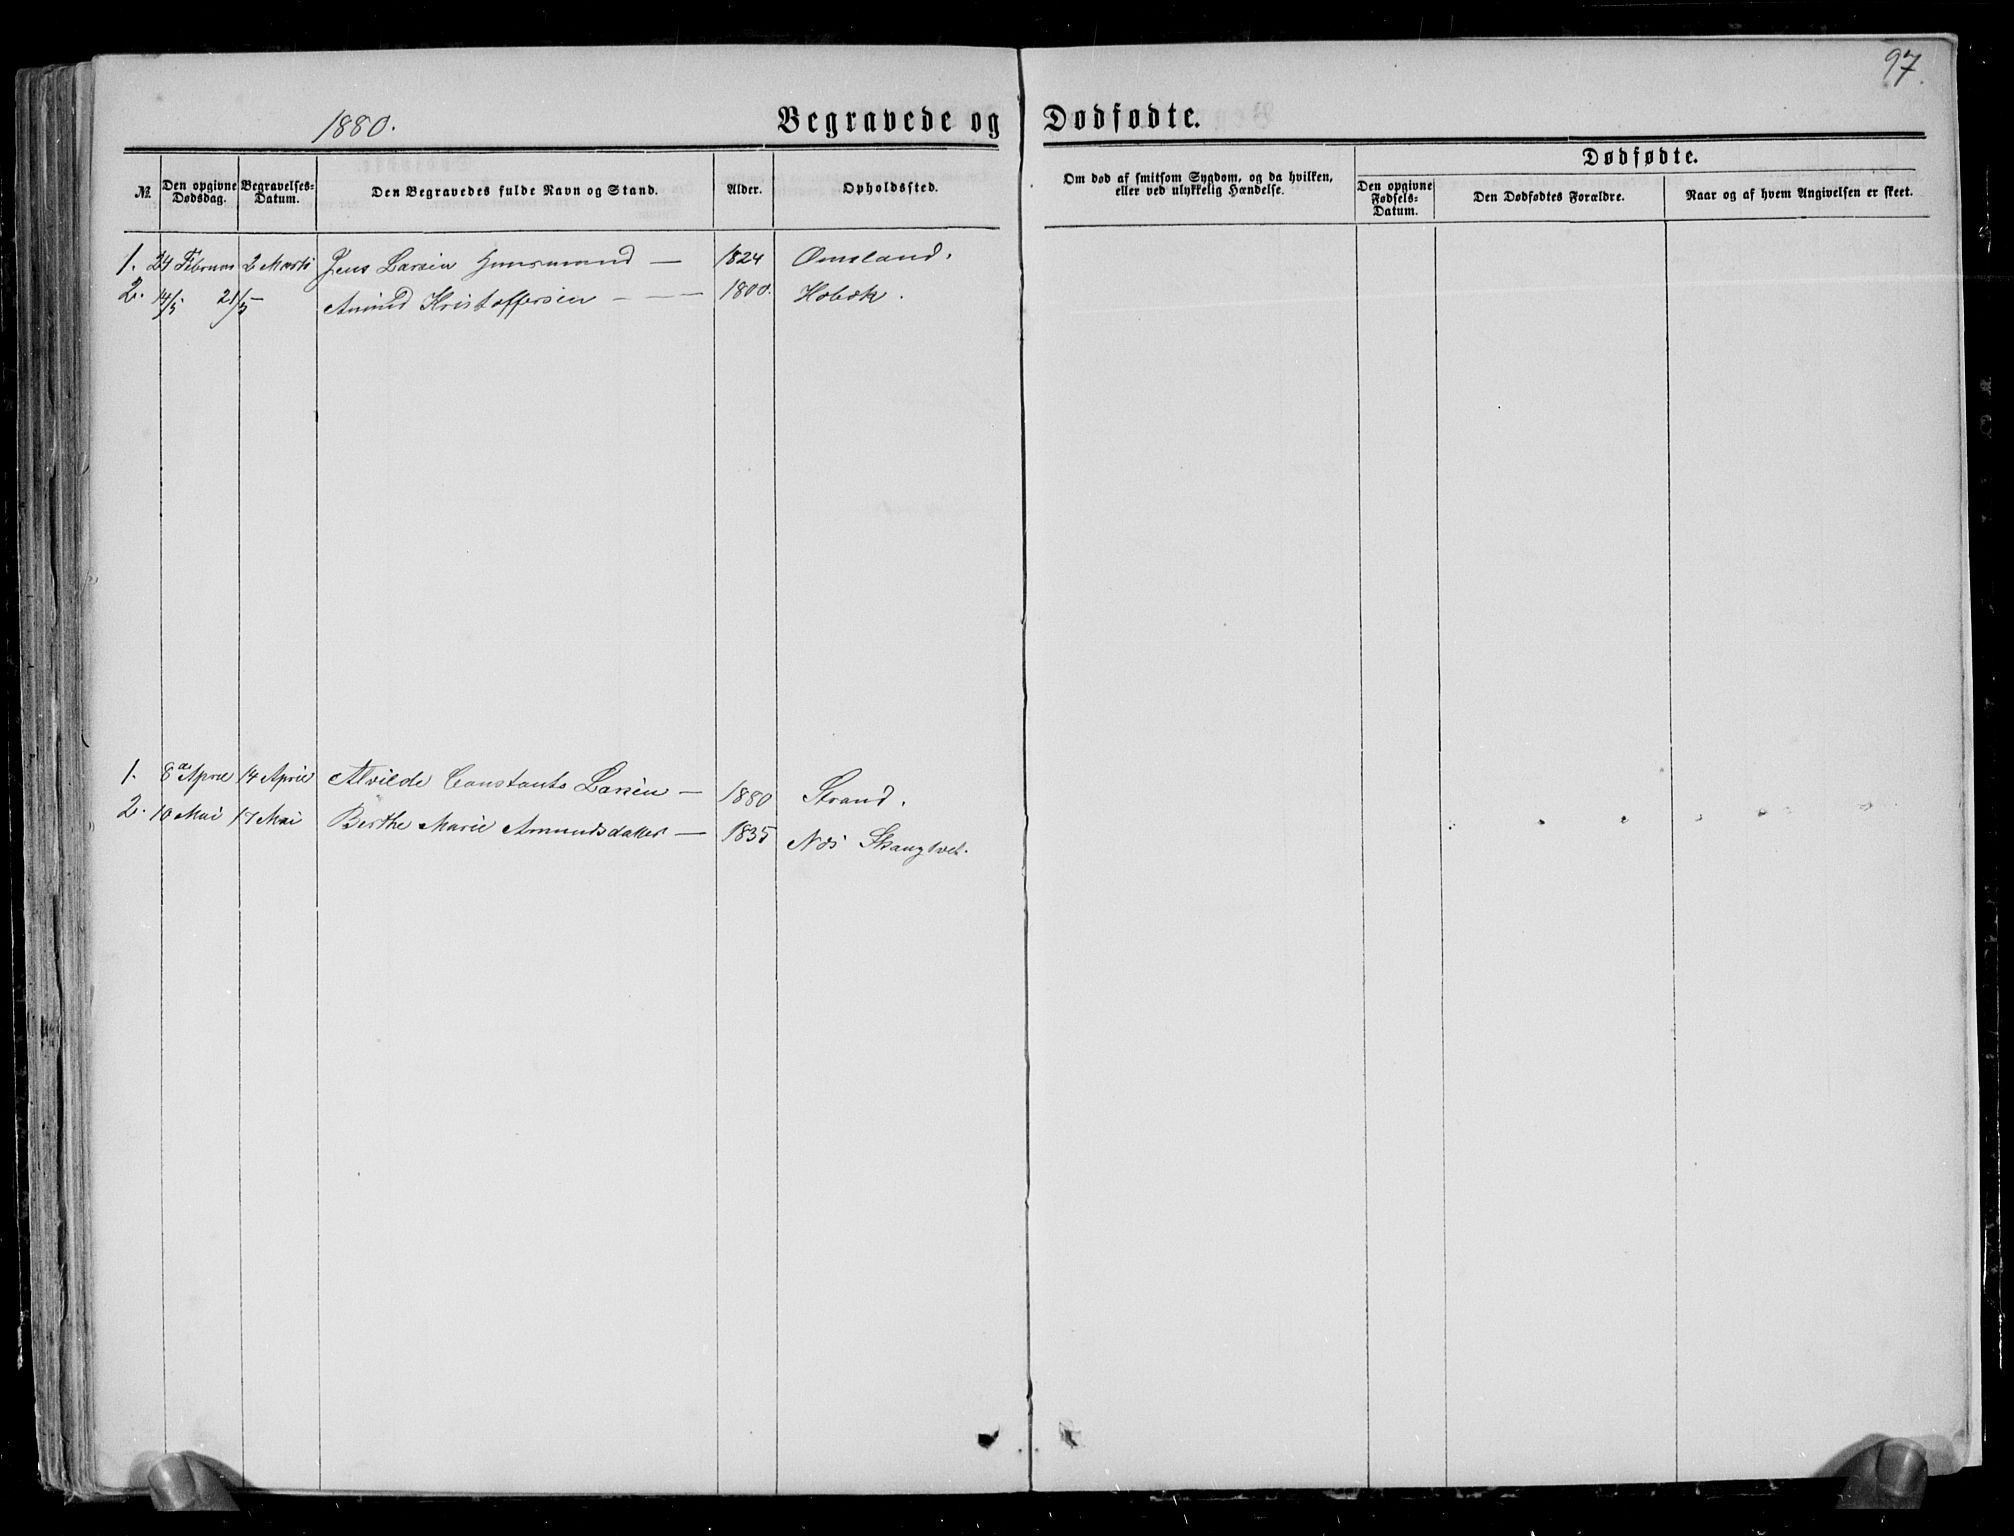 97.
1880. Begravede og Dødfødte.
№ Den opgivne Dødsdag. Begravelses-Datum. Den Begravedes fulde Navn og Stand. Alder. Opholdssted. Om død af smitsom Sygdom, og da hvilken, eller ved ulykkelig Hændelse. Dødfødte. Den opgivne Fødsels-Datum. Den Dødfødtes Forældre. Naar og af hvem Angivelsen er skeet.
1. 24 Februar 2 Marts Jens Larsen Huusmand — 1824 Omsland.
2. 14/3 21/3 — Amund Kristoffersen — — — 1800. Holbæk.
1. 8de April 14 April Alvilde Constantse Larsen — 1880 Strand.
2. 10 Mai 17 Mai Berthe Marie Amundsdatter — 1835 Næs Skaugtvet.